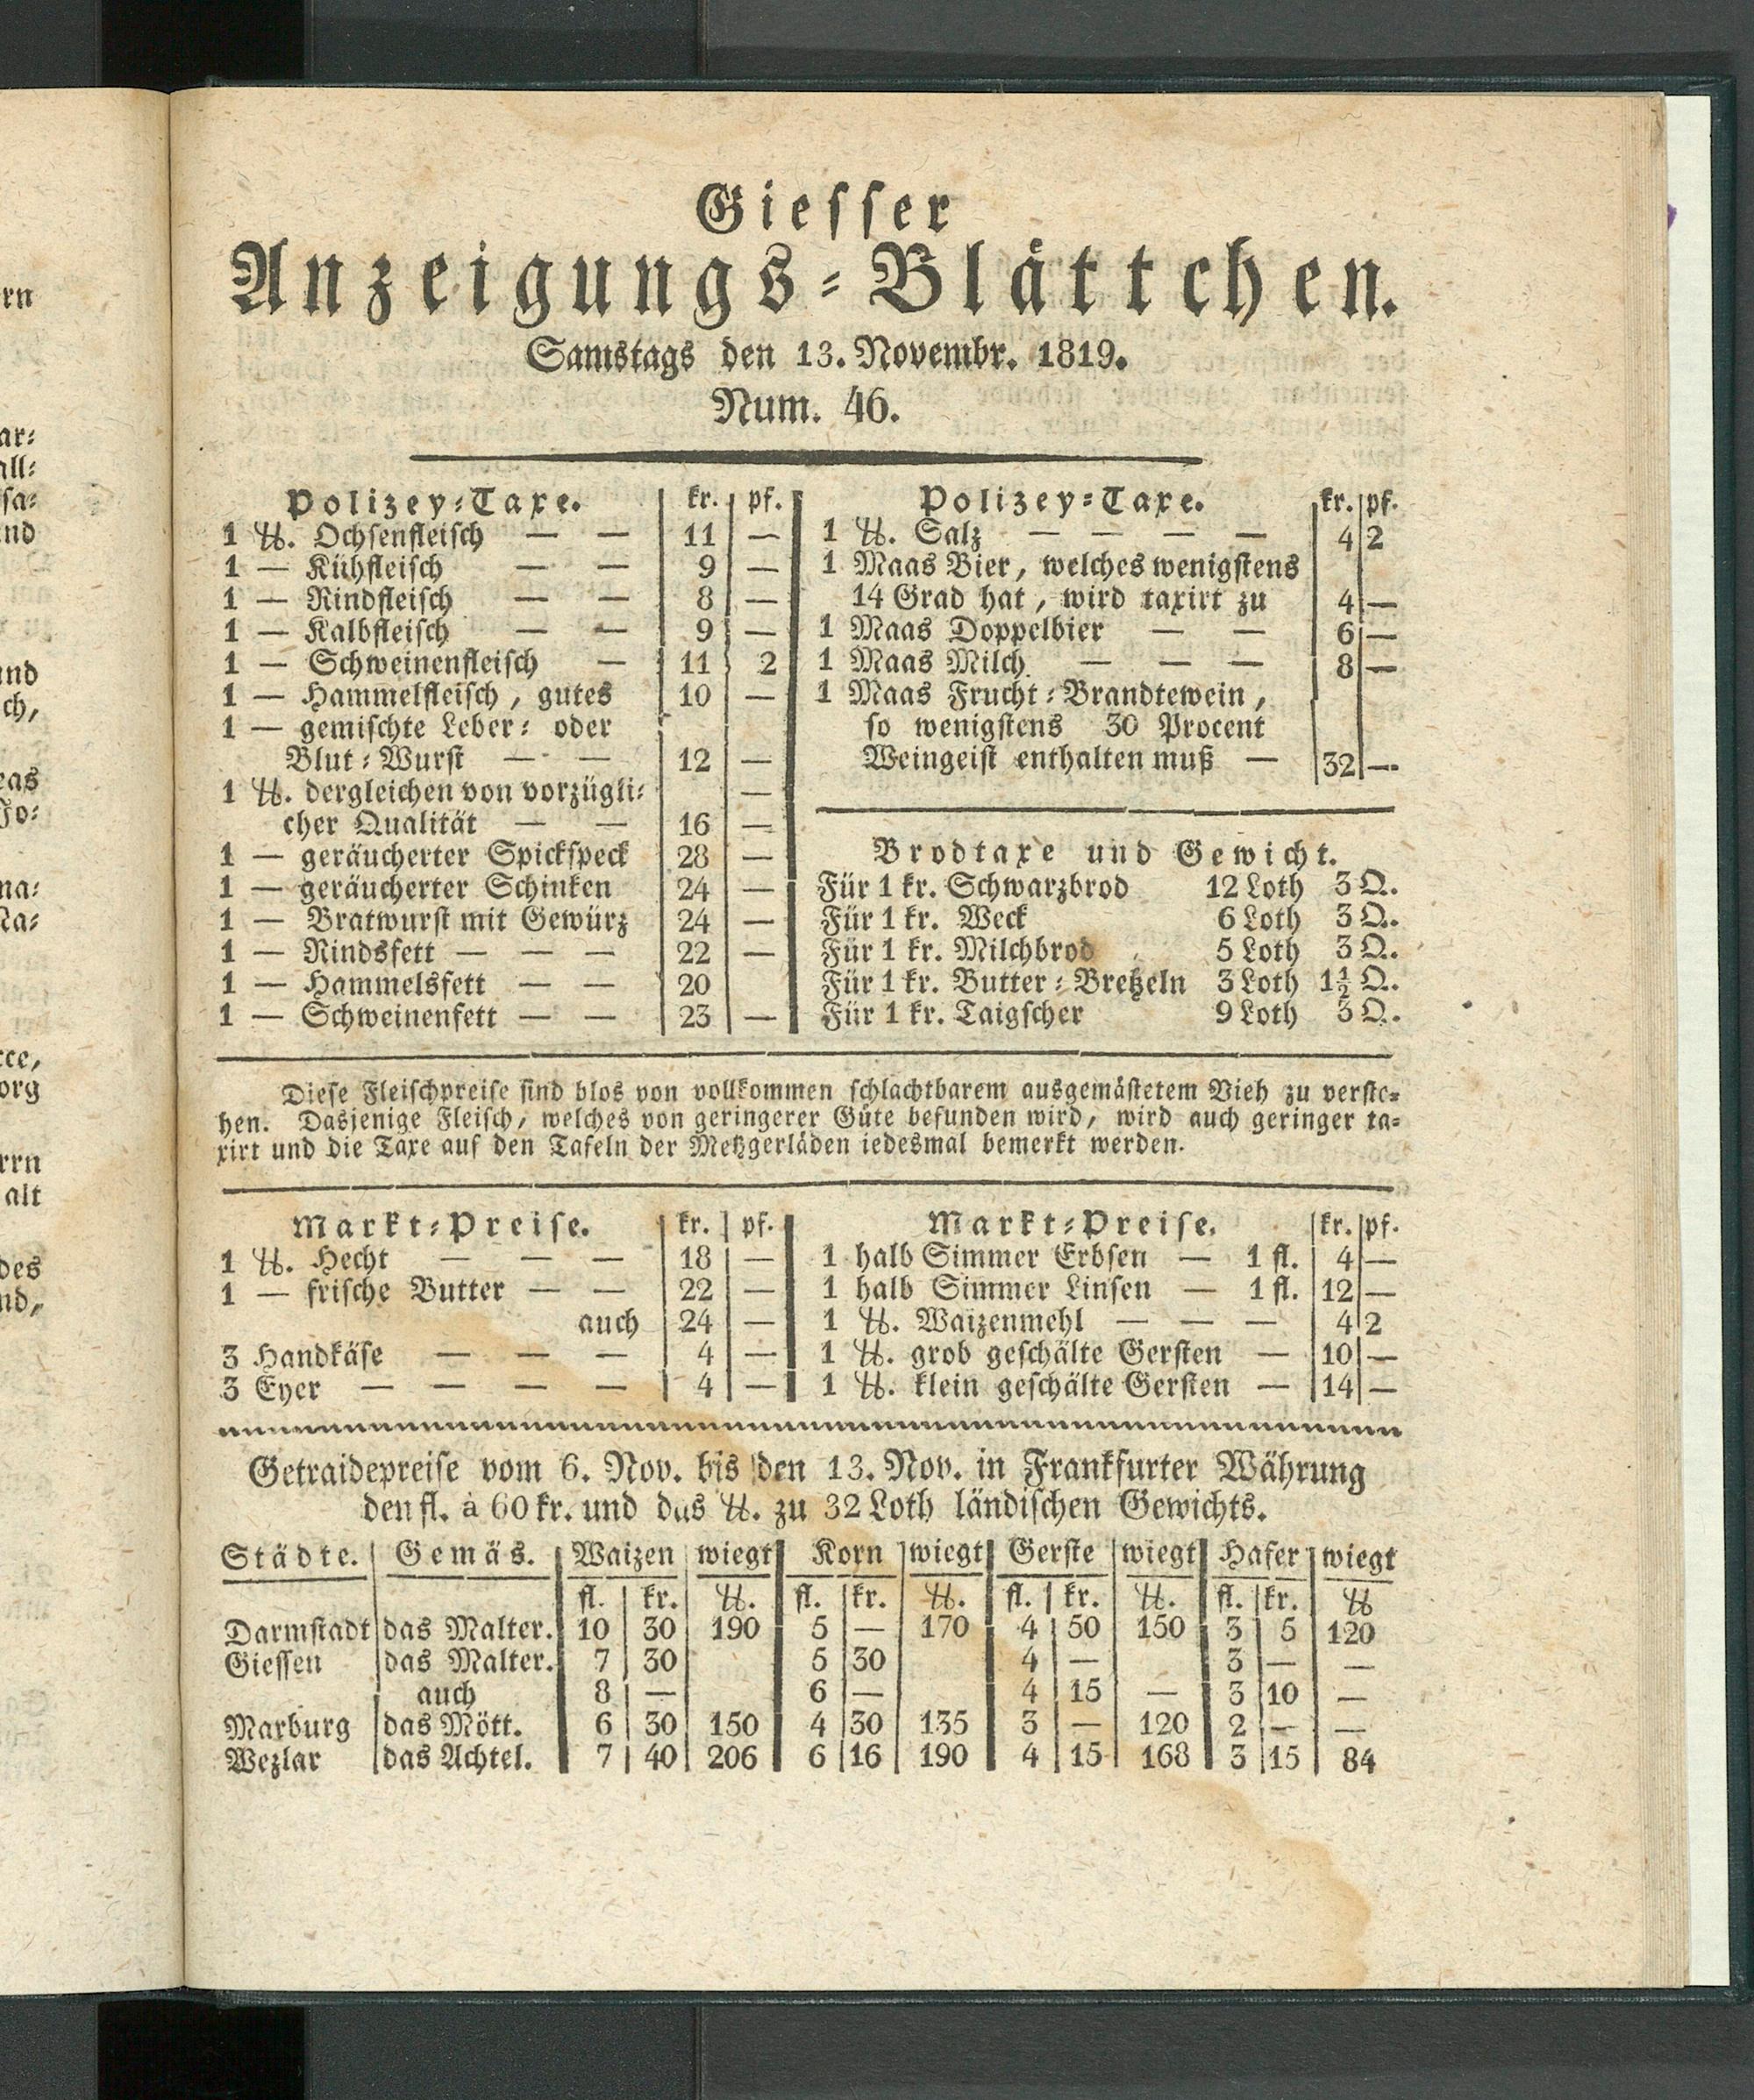 Giesser
Anzeigungs-Blättchen.
Samstags den 13. Novembr. 1819.
Num. 46.
Polizey-Taxe. kr. pf.
1 ℔. Ochsenfleisch — — 11 —
1 — Kühfleisch — — 9 —
1 — Rindfleisch — — 8 —
1 — Kalbfleisch — — 9 —
1 — Schweinenfleisch — 11 2
1 — Hammelfleisch, gutes 10 —
1 — gemischte Leber- oder
Blut-Wurst — — 12 —
1 ℔. dergleichen von vorzügli- —
cher Qualität — — 16 —
1 — geräucherter Spickspeck 28 —
1 — geräucherter Schinken 24 —
1 — Bratwurst mit Gewürz 24 —
1 — Rindsfett — — — 22 —
1 — Hammelsfett — — 20
1 — Schweinenfett — — 23 —
Polizey-Taxe. kr. pf.
1 ℔. Salz — — — — 4 2
1 Maas Bier, welches wenigstens
14 Grad hat, wird taxirt zu 4 —
1 Maas Doppelbier — — 6 —
1 Maas Milch — — — 8 —
1 Maas Frucht-Brandtewein,
so wenigstens 30 Procent
Weingeist enthalten muß — 32 —
Brodtaxe und Gewicht.
Für 1 kr. Schwarzbrod 12 Loth 3 Q.
Für 1 kr. Weck 6 Loth 3 Q.
Für 1 kr. Milchbrod 5 Loth 3 Q.
Für 1 kr. Butter-Bretzeln 3 Loth 1½ Q.
Für 1 kr. Taigscher 9 Loth 3 Q.
Diese Fleischpreise sind blos von vollkommen schlachtbarem ausgemästetem Vieh zu verste-
hen. Dasjenige Fleisch, welches von geringerer Güte befunden wird, wird auch geringer ta-
xirt und die Taxe auf den Tafeln der Metzgerläden iedesmal bemerkt werden.
Markt-Preise. kr. pf.
1 ℔. Hecht — — — 18 —
1 — frische Butter — — 22 —
auch 24 —
3 Handkäse — — — 4 —
3 Eyer — — — — 4 —
Markt-Preise. kr. pf.
1 halb Simmer Erbsen — 1 fl. 4 —
1 halb Simmer Linsen — 1 fl. 12 —
1 ℔. Waizenmehl — — — 4 2
1 ℔. grob geschälte Gersten — 10 —
1 ℔. klein geschälte Gersten — 14 —
Getraidepreise vom 6. Nov. bis den 13. Nov. in Frankfurter Währung
den fl. à 60 kr. und das ℔. zu 32 Loth ländischen Gewichts.
Städte. Gemäs. Waizen wiegt Korn wiegt Gerste wiegt Hafer wiegt
fl. kr. ℔. fl. kr. ℔. fl. kr. ℔. fl. kr. ℔
Darmstadt das Malter. 10 30 190 5 — 170 4 50 150 3 5 120
Giessen das Malter. 7 30 5 30 4 — 3 — —
auch 8 — 6 — 4 15 — 3 10 —
Marburg das Mött. 6 30 150 4 30 135 3 — 120 2 — —
Wezlar das Achtel. 7 40 206 6 16 190 4 15 168 3 15 84